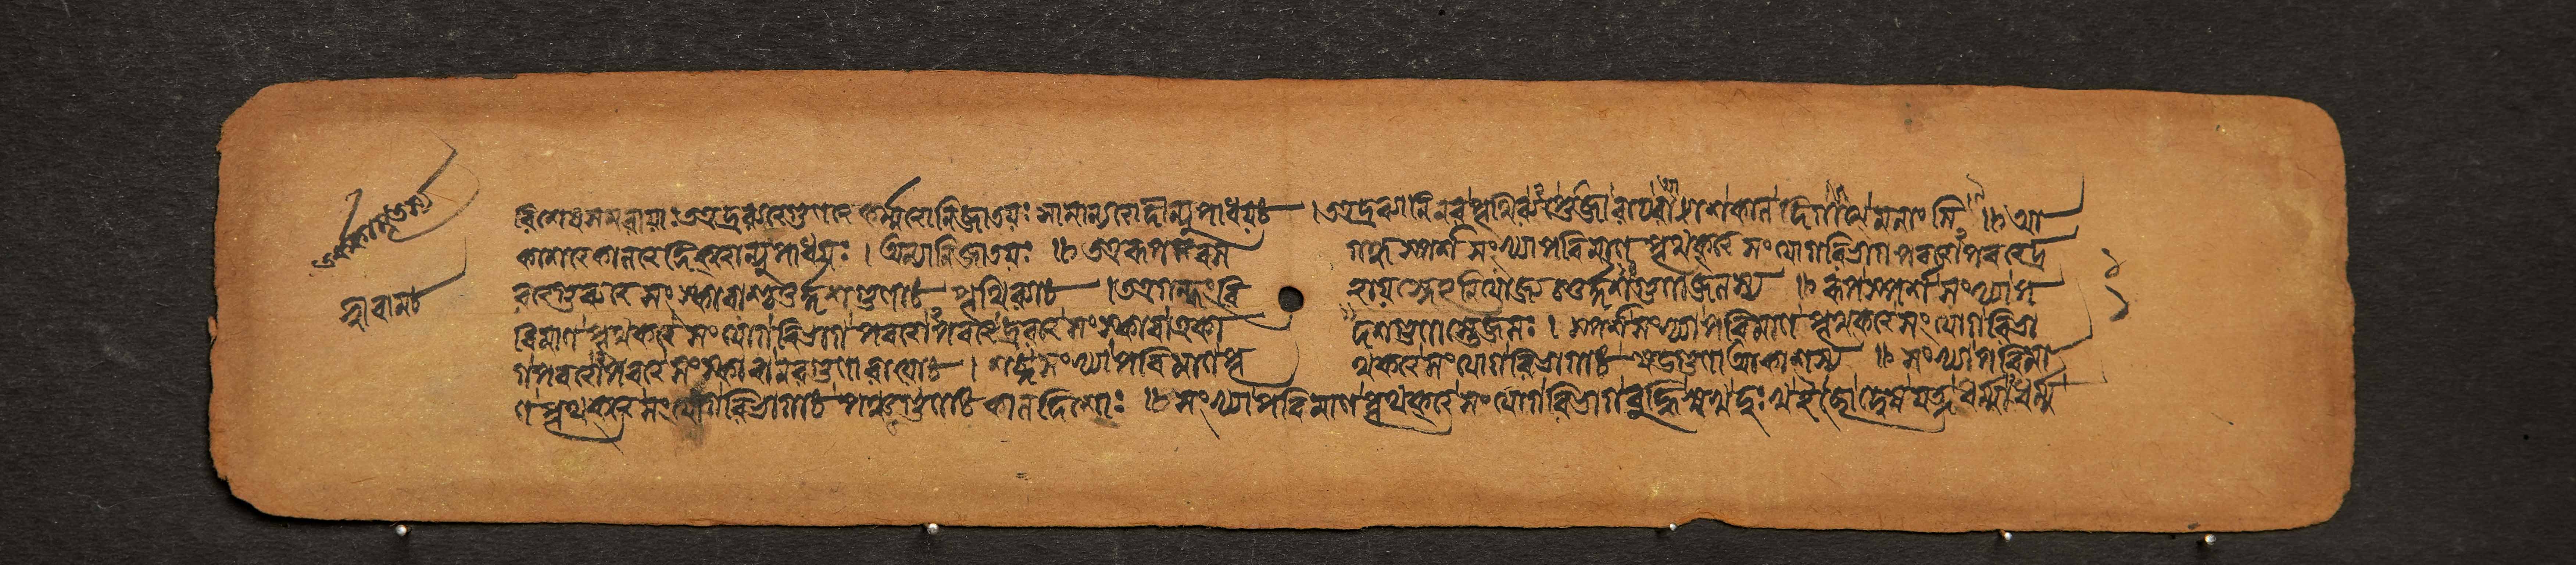 বিশেষসমবায়াঃ অত্র দ্রব্যত্বগুণত্বকর্ম্মত্বানি জাতয়ঃ সামান্যত্বাদীন্যুপাধয়ঃ । তত্র দ্রব্যাণি নব পৃথিব্যপ্তেজোবায়্বাকাশকালদিগাত্মমনাংসি ॥ আ
কাশত্বকালত্বদিক্ত্বান্যুপাধয়ঃ । অন্যানি জাতয়ঃ ॥ তত্র রূপরস গন্ধস্পর্শসংখ্যাপরিমাণপৃথক্ত্বসংযোগবিভাগপরত্বাপরত্বদ্র
বত্বগুরুত্বসংস্কারাশ্চতুর্দ্দশগুণাঃ পৃথিব্যাঃ । তত্র গন্ধং বি হায় চতুর্দ্দশগুণা জলস্য ॥ রূপস্পর্শসংখ্যাপ
রিমাণপৃথক্ত্বসংযোগবিভাগপরত্বাপরত্বদ্রবত্বসংস্কারা একা দশগুণাস্তেজসঃ । স্পর্শসংখ্যাপরিমাণপৃথক্ত্বসংযোগবিভা
গপরত্বাপরত্বসংস্কারা নবগুণা বায়োঃ । শব্দসংখ্যাপরিমাণপৃ থক্ত্বসংযোগবিভাগাঃ ষড্গুণা আকাশস্য ॥ সংখ্যাপরিমা
ণপৃথক্ত্বসংযোগবিভাগাঃ পঞ্চগুণাঃ কালদিশোঃ ॥ সংখ্যাপরিমাণপৃথক্ত্বসংযোগবিভাগবুদ্ধিসুখদুঃখেচ্ছাদ্বেষযত্নধর্ম্মাধর্ম্ম